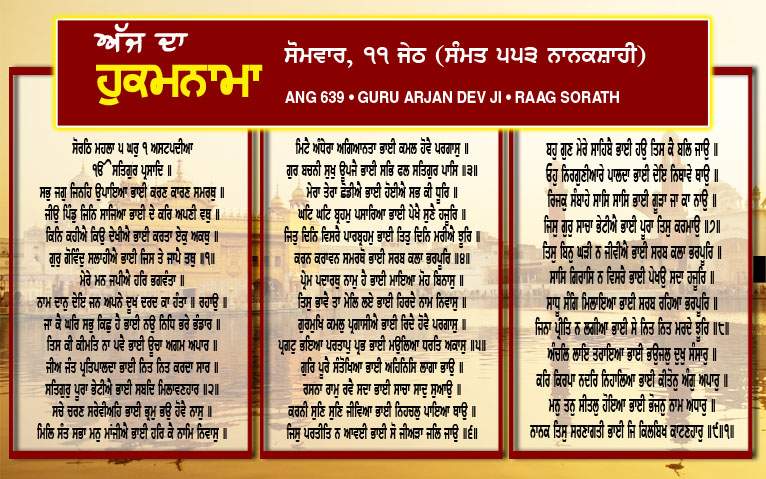 ਅੱਜ ਦਾ
ਹੁਕਮਨਾਮਾ
ਸੋਮਵਾਰ, ੧੧ ਜੇਠ (ਸੰਮਤ ੫੫੩ ਨਾਨਕਸ਼ਾਹੀ)
ANG 639 • GURU ARJAN DEV JI • RAAG SORATH
ਸੋਰਠਿ ਮਹਲਾ ੫ ਘਰੁ ੧ ਅਸਟਪਦੀਆ
ੴ ਸਤਿਗੁਰ ਪ੍ਰਸਾਦਿ ॥
ਸਭੁ ਜਗੁ ਜਿਨਹਿ ਉਪਾਇਆ ਭਾਈ ਕਰਣ ਕਾਰਣ ਸਮਰਥੁ ॥
ਜੀਉ ਪਿੰਡੁ ਜਿਨਿ ਸਾਜਿਆ ਭਾਈ ਦੇ ਕਰਿ ਅਪਣੀ ਵਥੁ ॥
ਕਿਨਿ ਕਹੀਐ ਕਿਉ ਦੇਖੀਐ ਭਾਈ ਕਰਤਾ ਏਕੁ ਅਕਥੁ ॥
ਗੁਰੁ ਗੋਵਿੰਦੁ ਸਲਾਹੀਐ ਭਾਈ ਜਿਸ ਤੇ ਜਾਪੈ ਤਥੁ ॥੧॥
ਮੇਰੇ ਮਨ ਜਪੀਐ ਹਰਿ ਭਗਵੰਤਾ ॥
ਨਾਮ ਦਾਨੁ ਦੇਇ ਜਨ ਅਪਨੇ ਦੂਖ ਦਰਦ ਕਾ ਹੰਤਾ ॥ ਰਹਾਉ ॥
ਜਾ ਕੈ ਘਰਿ ਸਭੁ ਕਿਛੁ ਹੈ ਭਾਈ ਨਉ ਨਿਧਿ ਭਰੇ ਭੰਡਾਰ ॥
ਤਿਸ ਕੀ ਕੀਮਤਿ ਨਾ ਪਵੈ ਭਾਈ ਊਚਾ ਅਗਮ ਅਪਾਰ ॥
ਜੀਅ ਜੰਤ ਪ੍ਰਤਿਪਾਲਦਾ ਭਾਈ ਨਿਤ ਨਿਤ ਕਰਦਾ ਸਾਰ ॥
ਸਤਿਗੁਰੁ ਪੂਰਾ ਭੇਟੀਐ ਭਾਈ ਸਬਦਿ ਮਿਲਾਵਣਹਾਰ ॥੨॥
ਸਚੇ ਚਰਣ ਸਰੇਵੀਅਹਿ ਭਾਈ ਭ੍ਰਮੁ ਭਉ ਹੋਵੈ ਨਾਸੁ ॥
ਮਿਲਿ ਸੰਤ ਸਭਾ ਮਨੁ ਮਾਂਜੀਐ ਭਾਈ ਹਰਿ ਕੈ ਨਾਮਿ ਨਿਵਾਸੁ ॥
ਮਿਟੈ ਅੰਧੇਰਾ ਅਗਿਆਨਤਾ ਭਾਈ ਕਮਲ ਹੋਵੈ ਪਰਗਾਸੁ ॥
ਗੁਰ ਬਚਨੀ ਸੁਖੁ ਊਪਜੈ ਭਾਈ ਸਭਿ ਫਲ ਸਤਿਗੁਰ ਪਾਸਿ ॥੩॥
ਮੇਰਾ ਤੇਰਾ ਛੋਡੀਐ ਭਾਈ ਹੋਈਐ ਸਭ ਕੀ ਧੂਰਿ ॥
ਘਟਿ ਘਟਿ ਬ੍ਰਹਮੁ ਪਸਾਰਿਆ ਭਾਈ ਪੇਖੈ ਸੁਣੈ ਹਜੂਰਿ ॥
ਜਿਤੁ ਦਿਨਿ ਵਿਸਰੈ ਪਾਰਬ੍ਰਹਮੁ ਭਾਈ ਤਿਤੁ ਦਿਨਿ ਮਰੀਐ ਝੂਰਿ ॥
ਕਰਨ ਕਰਾਵਨ ਸਮਰਥੋ ਭਾਈ ਸਰਬ ਕਲਾ ਭਰਪੂਰਿ ॥੪॥
ਪ੍ਰੇਮ ਪਦਾਰਥੁ ਨਾਮੁ ਹੈ ਭਾਈ ਮਾਇਆ ਮੋਹ ਬਿਨਾਸੁ ॥
ਤਿਸੁ ਭਾਵੈ ਤਾ ਮੇਲਿ ਲਏ ਭਾਈ ਹਿਰਦੈ ਨਾਮ ਨਿਵਾਸੁ ॥
ਗੁਰਮੁਖਿ ਕਮਲੁ ਪ੍ਰਗਾਸੀਐ ਭਾਈ ਰਿਦੈ ਹੋਵੈ ਪਰਗਾਸੁ ॥
ਪ੍ਰਗਟੁ ਭਇਆ ਪਰਤਾਪੁ ਪ੍ਰਭ ਭਾਈ ਮਉਲਿਆ ਧਰਤਿ ਅਕਾਸੁ ॥੫॥
ਗੁਰਿ ਪੂਰੈ ਸੰਤੋਖਿਆ ਭਾਈ ਅਹਿਨਿਸਿ ਲਾਗਾ ਭਾਉ ॥
ਰਸਨਾ ਰਾਮੁ ਰਵੈ ਸਦਾ ਭਾਈ ਸਾਚਾ ਸਾਦੁ ਸੁਆਉ ॥
ਕਰਨੀ ਸੁਣਿ ਸੁਣਿ ਜੀਵਿਆ ਭਾਈ ਨਿਹਚਲੁ ਪਾਇਆ ਥਾਉ ॥
ਜਿਸੁ ਪਰਤੀਤਿ ਨ ਆਵਈ ਭਾਈ ਸੋ ਜੀਅੜਾ ਜਲਿ ਜਾਉ ॥੬॥
ਬਹੁ ਗੁਣ ਮੇਰੇ ਸਾਹਿਬੈ ਭਾਈ ਹਉ ਤਿਸ ਕੈ ਬਲਿ ਜਾਉ ॥
ਓਹੁ ਨਿਰਗੁਣੀਆਰੇ ਪਾਲਦਾ ਭਾਈ ਦੇਇ ਨਿਥਾਵੇ ਥਾਉ ॥
ਰਿਜਕੁ ਸੰਬਾਹੇ ਸਾਸਿ ਸਾਸਿ ਭਾਈ ਗੂੜਾ ਜਾ ਕਾ ਨਾਉ ॥
ਜਿਸੁ ਗੁਰੁ ਸਾਚਾ ਭੇਟੀਐ ਭਾਈ ਪੂਰਾ ਤਿਸੁ ਕਰਮਾਉ ॥੭॥
ਤਿਸੁ ਬਿਨੁ ਘੜੀ ਨ ਜੀਵੀਐ ਭਾਈ ਸਰਬ ਕਲਾ ਭਰਪੂਰਿ ॥
ਸਾਸਿ ਗਿਰਾਸਿ ਨ ਵਿਸਰੈ ਭਾਈ ਪੇਖਉ ਸਦਾ ਹਜੂਰਿ ॥
ਸਾਧੂ ਸੰਗਿ ਮਿਲਾਇਆ ਭਾਈ ਸਰਬ ਰਹਿਆ ਭਰਪੂਰਿ ॥
ਜਿਨਾ ਪ੍ਰੀਤਿ ਨ ਲਗੀਆ ਭਾਈ ਸੇ ਨਿਤ ਨਿਤ ਮਰਦੇ ਝੂਰਿ ॥੮॥
ਅੰਚਲਿ ਲਾਇ ਤਰਾਇਆ ਭਾਈ ਭਉਜਲੁ ਦੁਖੁ ਸੰਸਾਰੁ ॥
ਕਰਿ ਕਿਰਪਾ ਨਦਰਿ ਨਿਹਾਲਿਆ ਭਾਈ ਕੀਤੋਨੁ ਅੰਗੁ ਅਪਾਰੁ ॥
ਮਨੁ ਤਨੁ ਸੀਤਲੁ ਹੋਇਆ ਭਾਈ ਭੋਜਨੁ ਨਾਮ ਅਧਾਰੁ ॥
ਨਾਨਕ ਤਿਸੁ ਸਰਣਾਗਤੀ ਭਾਈ ਜਿ ਕਿਲਬਿਖ ਕਾਟਣਹਾਰੁ ॥੯॥੧॥